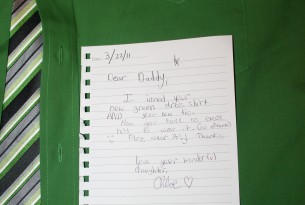 3/23/11
Dear Daddy,
I ironed your
new green dress shirt
AND your new tie.
Now you have to
to wear it.
Love your wonderful
daughter,
Chloe ♡